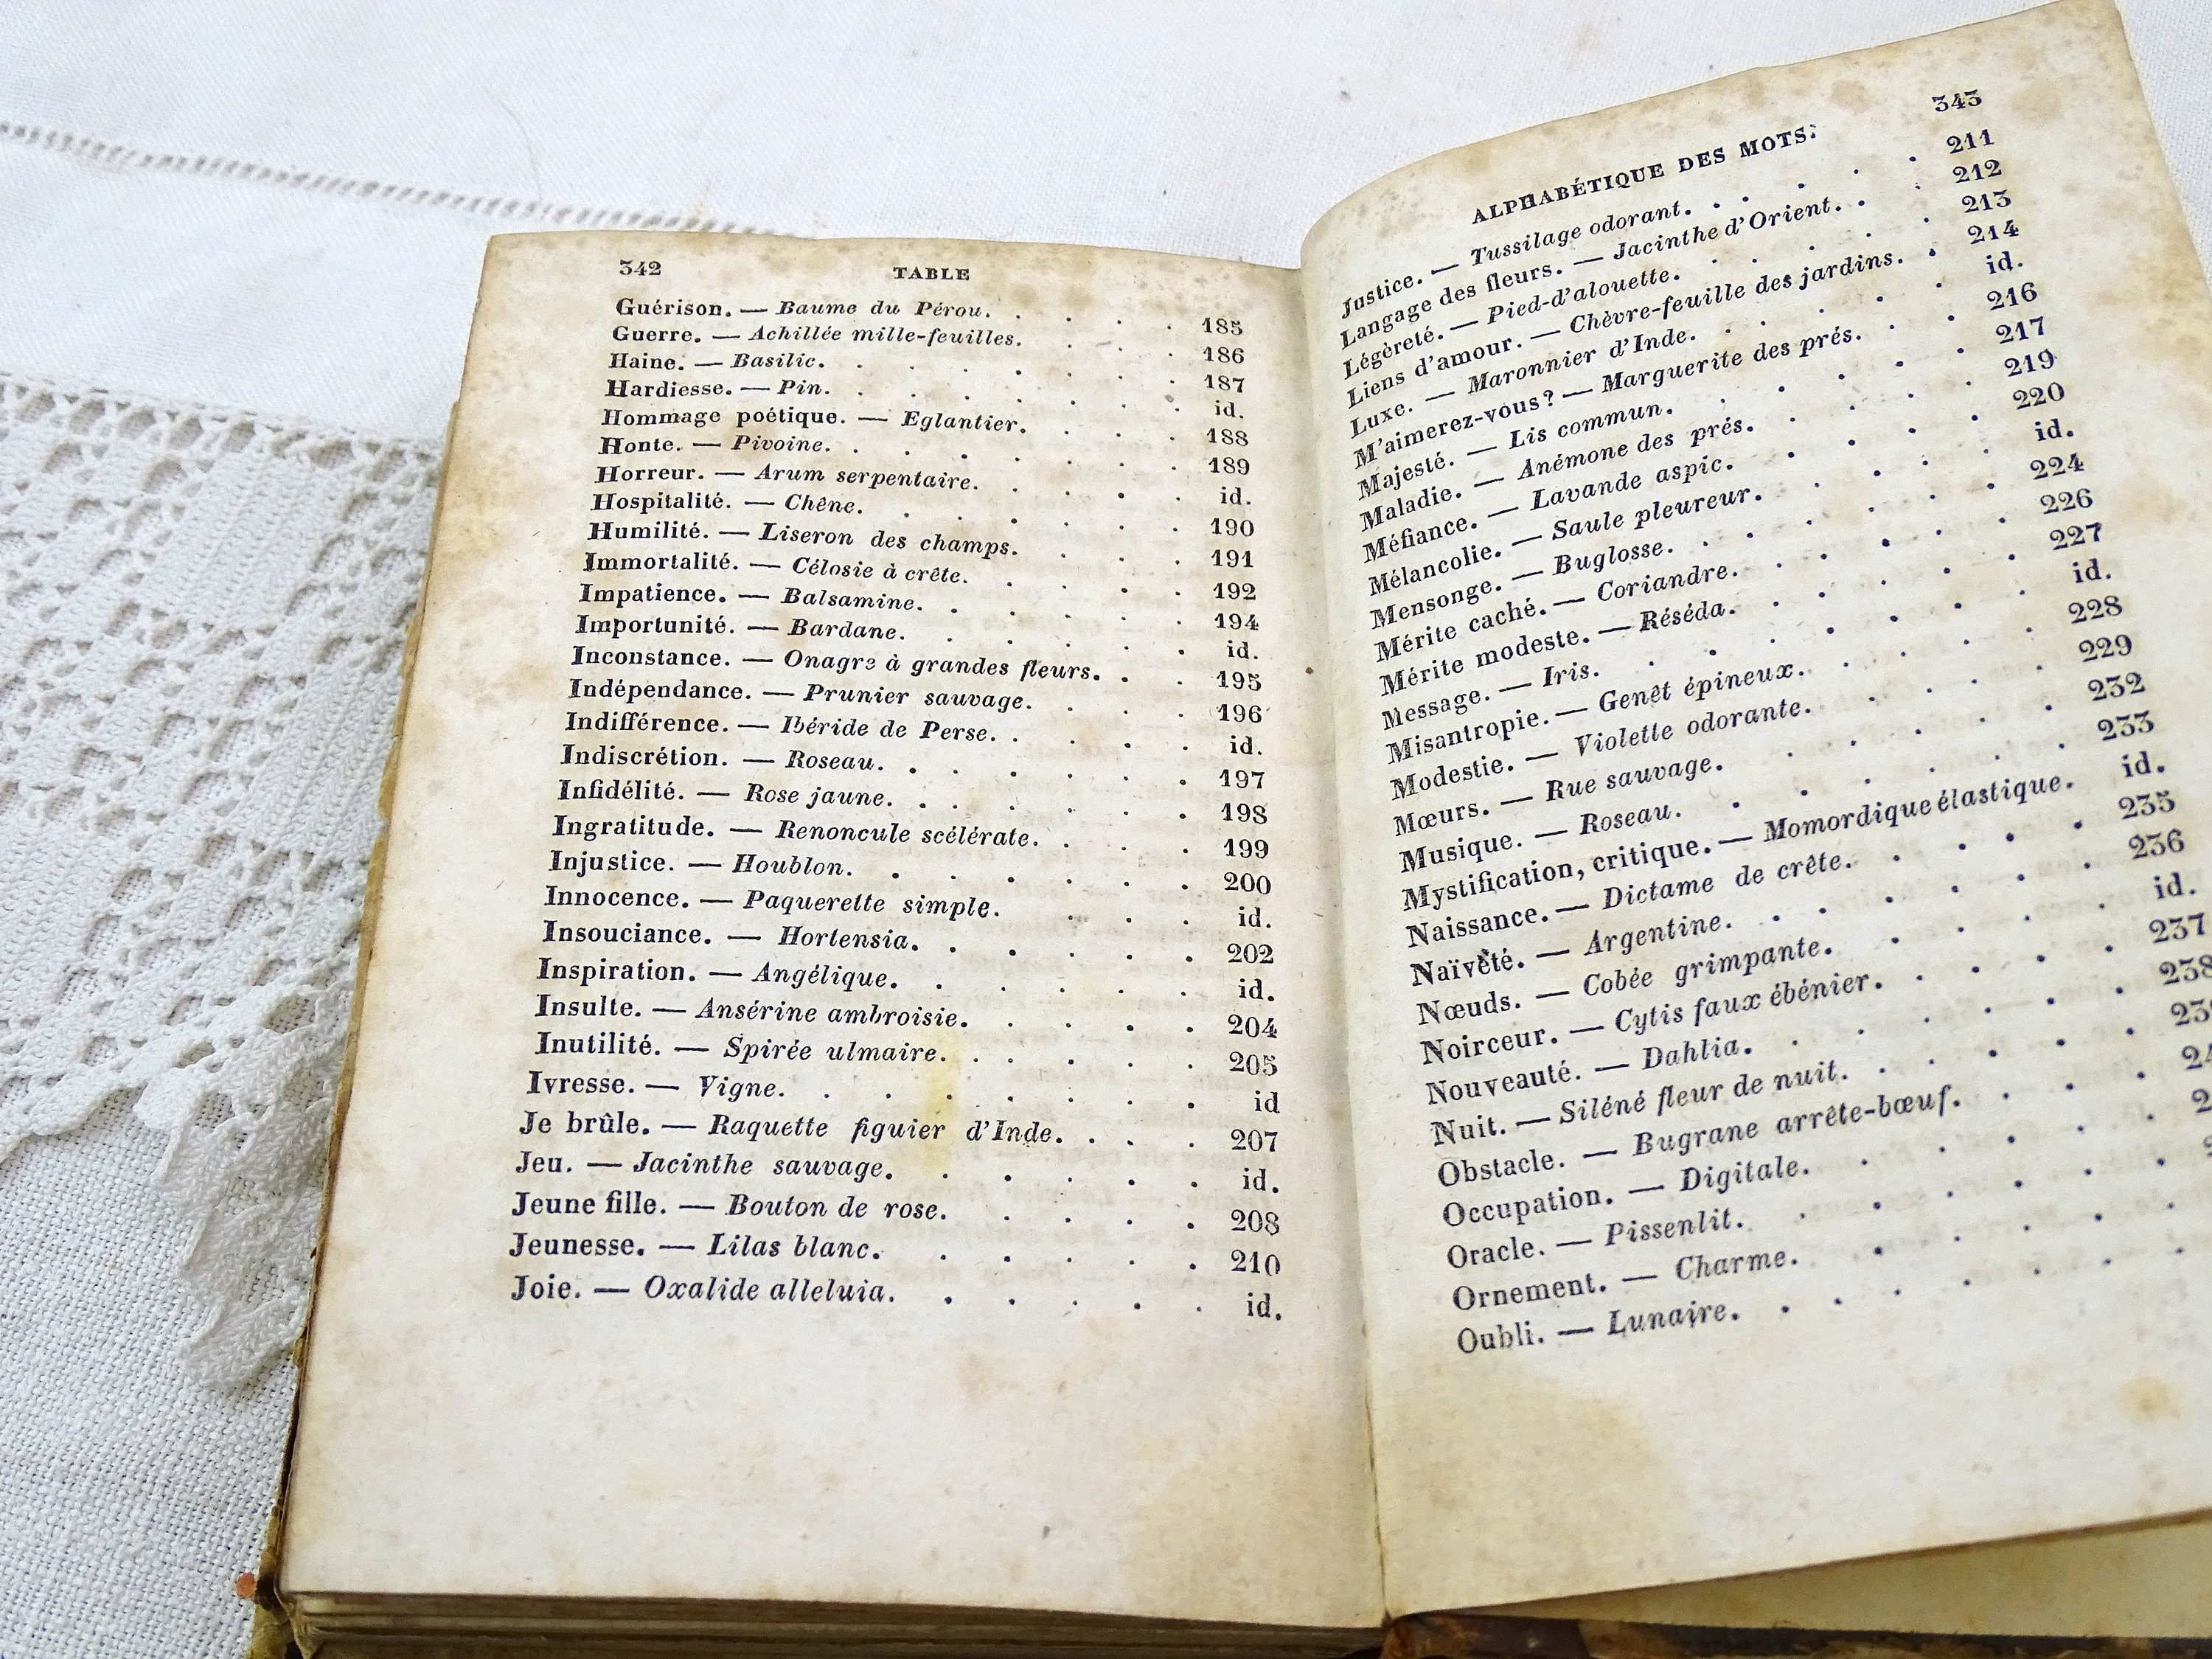 342 TABLE
Guérison. — Baume du Pérou. . . . 185
Guerre. — Achillée mille-feuilles. . . . 186
Haine. — Basilic. . . . . . 187
Hardiesse. — Pin. . . . . . id.
Hommage poétique. — Eglantier. . . . 188
Honte. — Pivoine. . . . . . 189
Horreur. — Arum serpentaire. . . . id.
Hospitalité. — Chêne. . . . . . 190
Humilité. — Liseron des champs. . . . 191
Immortalité. — Célosie à crête. . . . . 192
Impatience. — Balsamine. . . . . . 194
Importunité. — Bardane. . . . . id.
Inconstance. — Onagre à grandes fleurs. . . 195
Indépendance. — Prunier sauvage. . . . 196
Indifférence. — Ibéride de Perse. . . . . id.
Indiscrétion. — Roseau. . . . . . 197
Infidélité. — Rose jaune. . . . . . 198
Ingratitude. — Renoncule scélérate. . . . 199
Injustice. — Houblon. . . . . . 200
Innocence. — Paquerette simple. . . . id.
Insouciance. — Hortensia. . . . . . 202
Inspiration. — Angélique. . . . . . id.
Insulte. — Ansérine ambroisie. . . . . 204
Inutilité. — Spirée ulmaire. . . . . . 205
Ivresse. — Vigne. . . . . . . id
Je brûle. — Raquette figuier d'Inde. . . . 207
Jeu. — Jacinthe sauvage. . . . . . id.
Jeune fille. — Bouton de rose. . . . . 208
Jeunesse. — Lilas blanc. . . . . . 210
Joie. — Oxalide alleluia. . . . . . id.
ALPHABÉTIQUE DES MOTS. 343
Justice. — Tussilage odorant. . . . . . 211
Langage des fleurs. — Jacinthe d'Orient. . . 212
Légèreté. — Pied-d'alouette. . . . . 213
Liens d'amour. — Chèvre-feuille des jardins. . 214
Luxe. — Maronnier d'Inde. . . . . . id.
M'aimerez-vous? — Marguerite des prés. . . 216
Majesté. — Lis commun. . . . . . 217
Maladie. — Anémone des prés. . . . . 219
Méfiance. — Lavande aspic. . . . . 220
Mélancolie. — Saule pleureur. . . . . id.
Mensonge. — Buglosse. . . . . . . 224
Mérite caché. — Coriandre. . . . . . 226
Mérite modeste. — Réséda. . . . . . 227
Message. — Iris. . . . . . . . id.
Misantropie. — Genêt épineux. . . . . 228
Modestie. — Violette odorante. . . . . 229
Mœurs. — Rue sauvage. . . . . . 232
Musique. — Roseau. . . . . . . 233
Mystification, critique. — Momordique élastique. id.
Naissance. — Dictame de crête. . . . . 235
Naïveté. — Argentine. . . . . . . 236
Nœuds. — Cobée grimpante. . . . . id.
Noirceur. — Cytis faux ébénier. . . . . 237
Nouveauté. — Dahlia. . . . . . . 238
Nuit. — Siléné fleur de nuit. . . . . .
Obstacle. — Bugrane arrête-bœuf. . . . .
Occupation. — Digitale. . . . . . .
Oracle. — Pissenlit. . . . . . .
Ornement. — Charme. . . . . .
Oubli. — Lunaire. . . . . . .